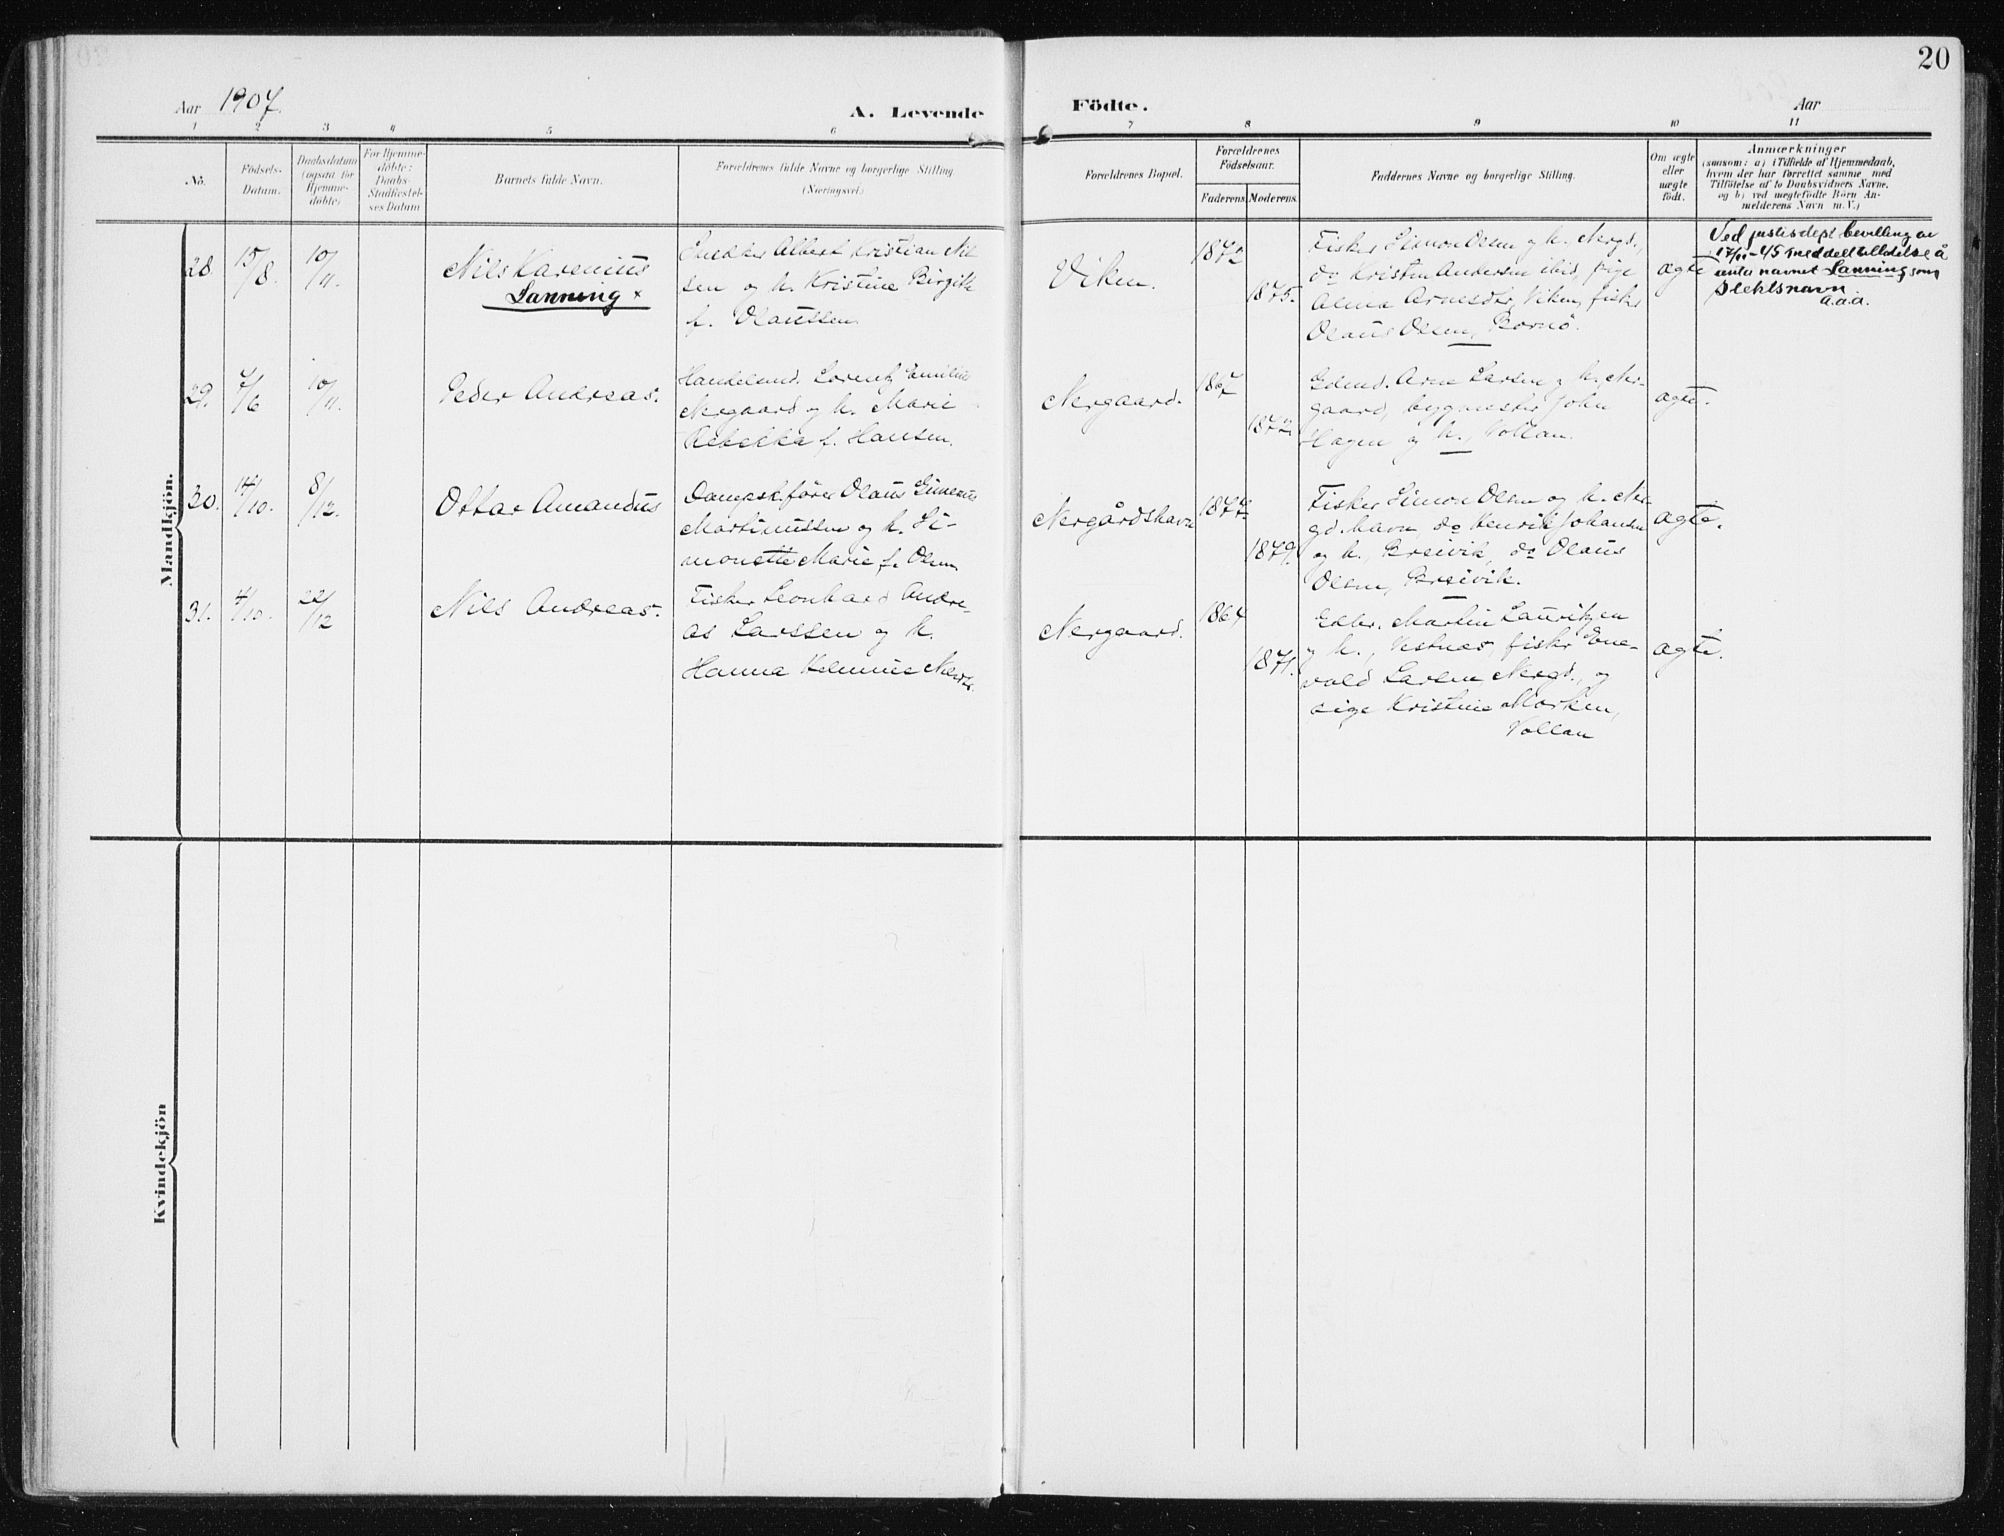 20
Aar 1907.
A. Levende
Födte.
Aar
1 2 3 4 5 6
7 8 9 10 11
No.
Födsels-
Datum.
Daabsdatum
(ogsaa for
Hjemme-
döbte)
For Hjemme-
döbte:
Daabs-
Stadfæstel-
ses Datum
Barnets fulde Navn.
Forældrenes fulde Navne og borgerlige Stilling
(Næringsvei)
Forældrenes Bopæl.
Forældrenes
Födselsaar.
Faderens
Moderens
Faddernes Navne og borgerlige Stilling.
Om ægte
eller
uægte
födt.
Anmærkninger
(saasom: a) i Tilfælde af Hjemmedaab,
hvem der har forrettet samme med
Tilföielse af to Daabsvidners Navne,
og b) ved uægtefödte Börn An-
melderens Navn m.V.)
Mandkjön.
28. 15/8 10/11.
Nils Karenius
Lanning x
Snedker Albert Kristian Nil
sen og h. Kristine Birgitte
f. Olaussen
Viken.
1872
1875.
Fisker Simon Olsen og h. Nergd.,
do Kristen Andersen ibid, pige
Alma Arnesdtr, Viken, fisker
Olaus Olsen, Bornö.
ægte
Ved justisdept bevilling av
17/11-45 meddelt tilladelse å
anta navnet Lanning som
slektsnavn
a.a.a.
29. 7/6 10/11.
Peder Andreas.
Handelsmd. Lorentz Emilius
Nergaard og h. Marie
Rebekka f. Hansen.
Nergaard.
1867
1872
Gdmd. Arne Larsen og h. Ner-
gaard, bygmester John
Hagen og h., Vollan.
ægte.
30. 14/10. 8/12.
Ottar Amandus
Dampskfører Olaus
Martinussen og h. Si-
monette Marie f. Olsen
Nergårdshavn
1877
1879.
Fisker Simon Olsen og h. Ner
gd.havn, do Henrik Johansen
og h., Breivik, do Olaus
Olsen, Breivik.
ægte.
31. 4/10. 22/12
Nils Andreas.
Fisker Leonhard Andre-
as Larssen og h.
Hanna
Nergaard.
1864
1871.
Gdbr. Martin Lauritzen
og h., Vestnes, fisker Ene-
vold Larsen Nergd., og
pige Kristine Marken,
Vollan
ægte.
Kvindekjön